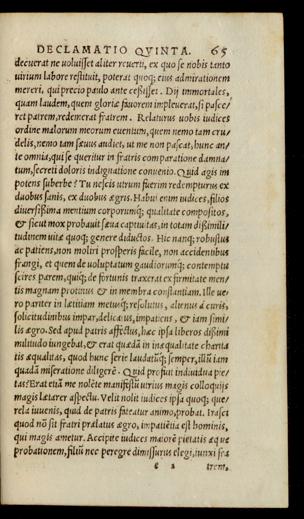 DECLAMATIO QVINTA. 65
decuerat ne voluisset aliter reuerti, ex quo se nobis tanto
uirium labore restituit, poterat quoq; eius admirationem
mereri, qui precio paulo ante cessisset. Dij immortales,
quam laudem, quem gloriæ fauorem impleuerat, si pasce/
ret patrem, redemerat fratrem. Relaturus uobis iudices
ordine malorum meorum euentum, quem nemo tam cru/
delis, nemo tam sæuus audiet, ut me non pascat, hunc an/
te omnia, qui se queritur in fratris comparatione damna/
tum, secreti doloris indignatione conuenio. Quid agis im
potens superbe? Tu nescis utrum fuerim redempturus ex
duobus sanis, ex duobus ægris. Habui enim iudices, filios
diuersissima mentium corporumq; qualitate compositos,
& sicut mox probauit sæua captiuitas, in totam dissimili/
tudinem uitæ quoq; genere diductos. Hic nanq; robustus
ac patiens, non moliri prosperis facile, non accidentibus
frangi, et quem de uoluptatum gaudiorumq; contemptu
scires parem, quicq; de fortunis traxerat ex firmitate men/
tis magnam protinus & in membra constantiam. Ille ue/
ro pariter in lætitiam metumq; resolutus, alienus à curis,
solicitudinibus impar, delicatus, impatiens, & iam simi/
lis ægro. Sed apud patris affectus, hæc ipsa liberos dissimi
militudo iungebat, & erat quædã in inæqualitate charita
tis æqualitas, quod hunc semper laudatũq; semper, illũ tam
quadã miseratione diligerē. Quid profuit indiuidua pie/
tas? Erat etiã me nolēte manifestũ utrius magis colloquijs
magis lætarer aspectu. Velit nolit iudices ipsa quoq; que/
rela iuuenis, quid de patris fateatur animo, probat. Irasci
quod nõ sit fratri prælatus ægro, impatiētia est hominis,
qui magis ametur. Accipite iudices maiorē pietatis æquæ
probationem, filiũ nec peregre dimissurus elegi, iunxi fra
trem,